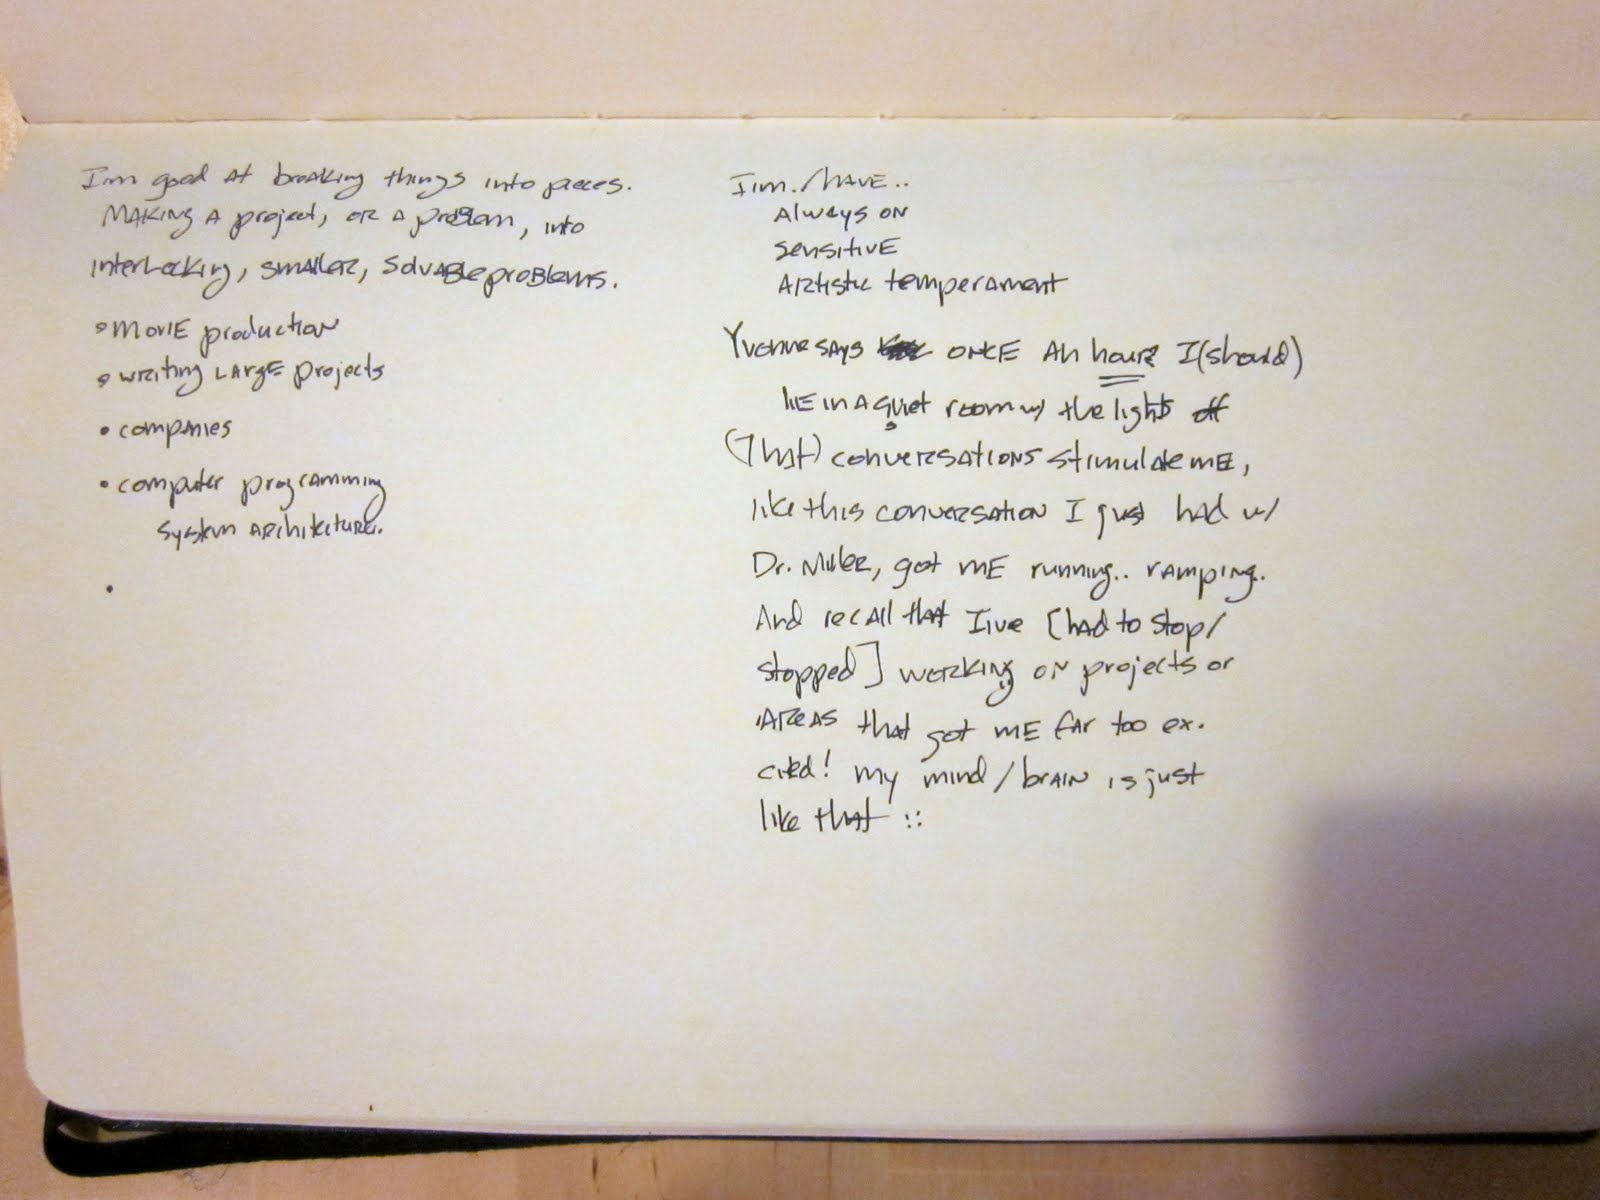 I'm good at breaking things into pieces.
Making a project, or a problem, into
interlocking, smaller, solvable problems.
• movie production
• writing large projects
• companies
• computer programming
system architecture.
•
I'm./have..
Always on
sensitive
Artistic temperament
Yvonne says once an hour I (should)
lie in a quiet room w/ the lights off
(That) conversations stimulate me,
like this conversation I just had w/
Dr. Miller, got me running.. ramping.
And recall that I've [had to stop/
stopped] working on projects or
areas that got me far too ex-
cited! my mind/brain is just
like that ::